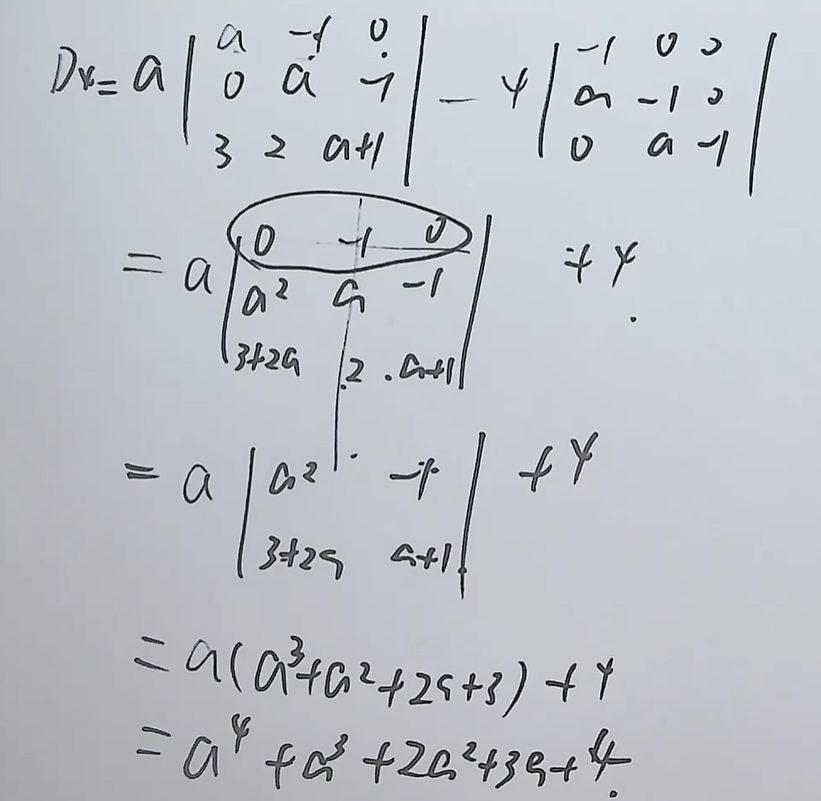 D₄ = a | a -1 0 | - 4 | -1 0 0 |
| 0 a -1 | | a -1 0 |
| 3 2 a+1 | | 0 a -1 |
= a | 0 -1 0 | + 4
| a² a -1 |
| 3+2a 2 a+1 |
= a | a² -1 | + 4
| 3+2a a+1 |
= a(a³+a²+2a+3)+4
= a⁴+a³+2a²+3a+4.